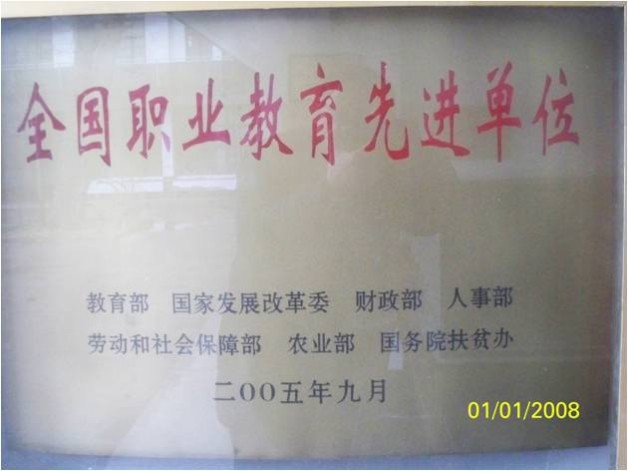 全国职业教育先进单位
教育部 国家发展改革委 财政部 人事部
劳动和社会保障部 农业部 国务院扶贫办
二OO五年九月
01/01/2008